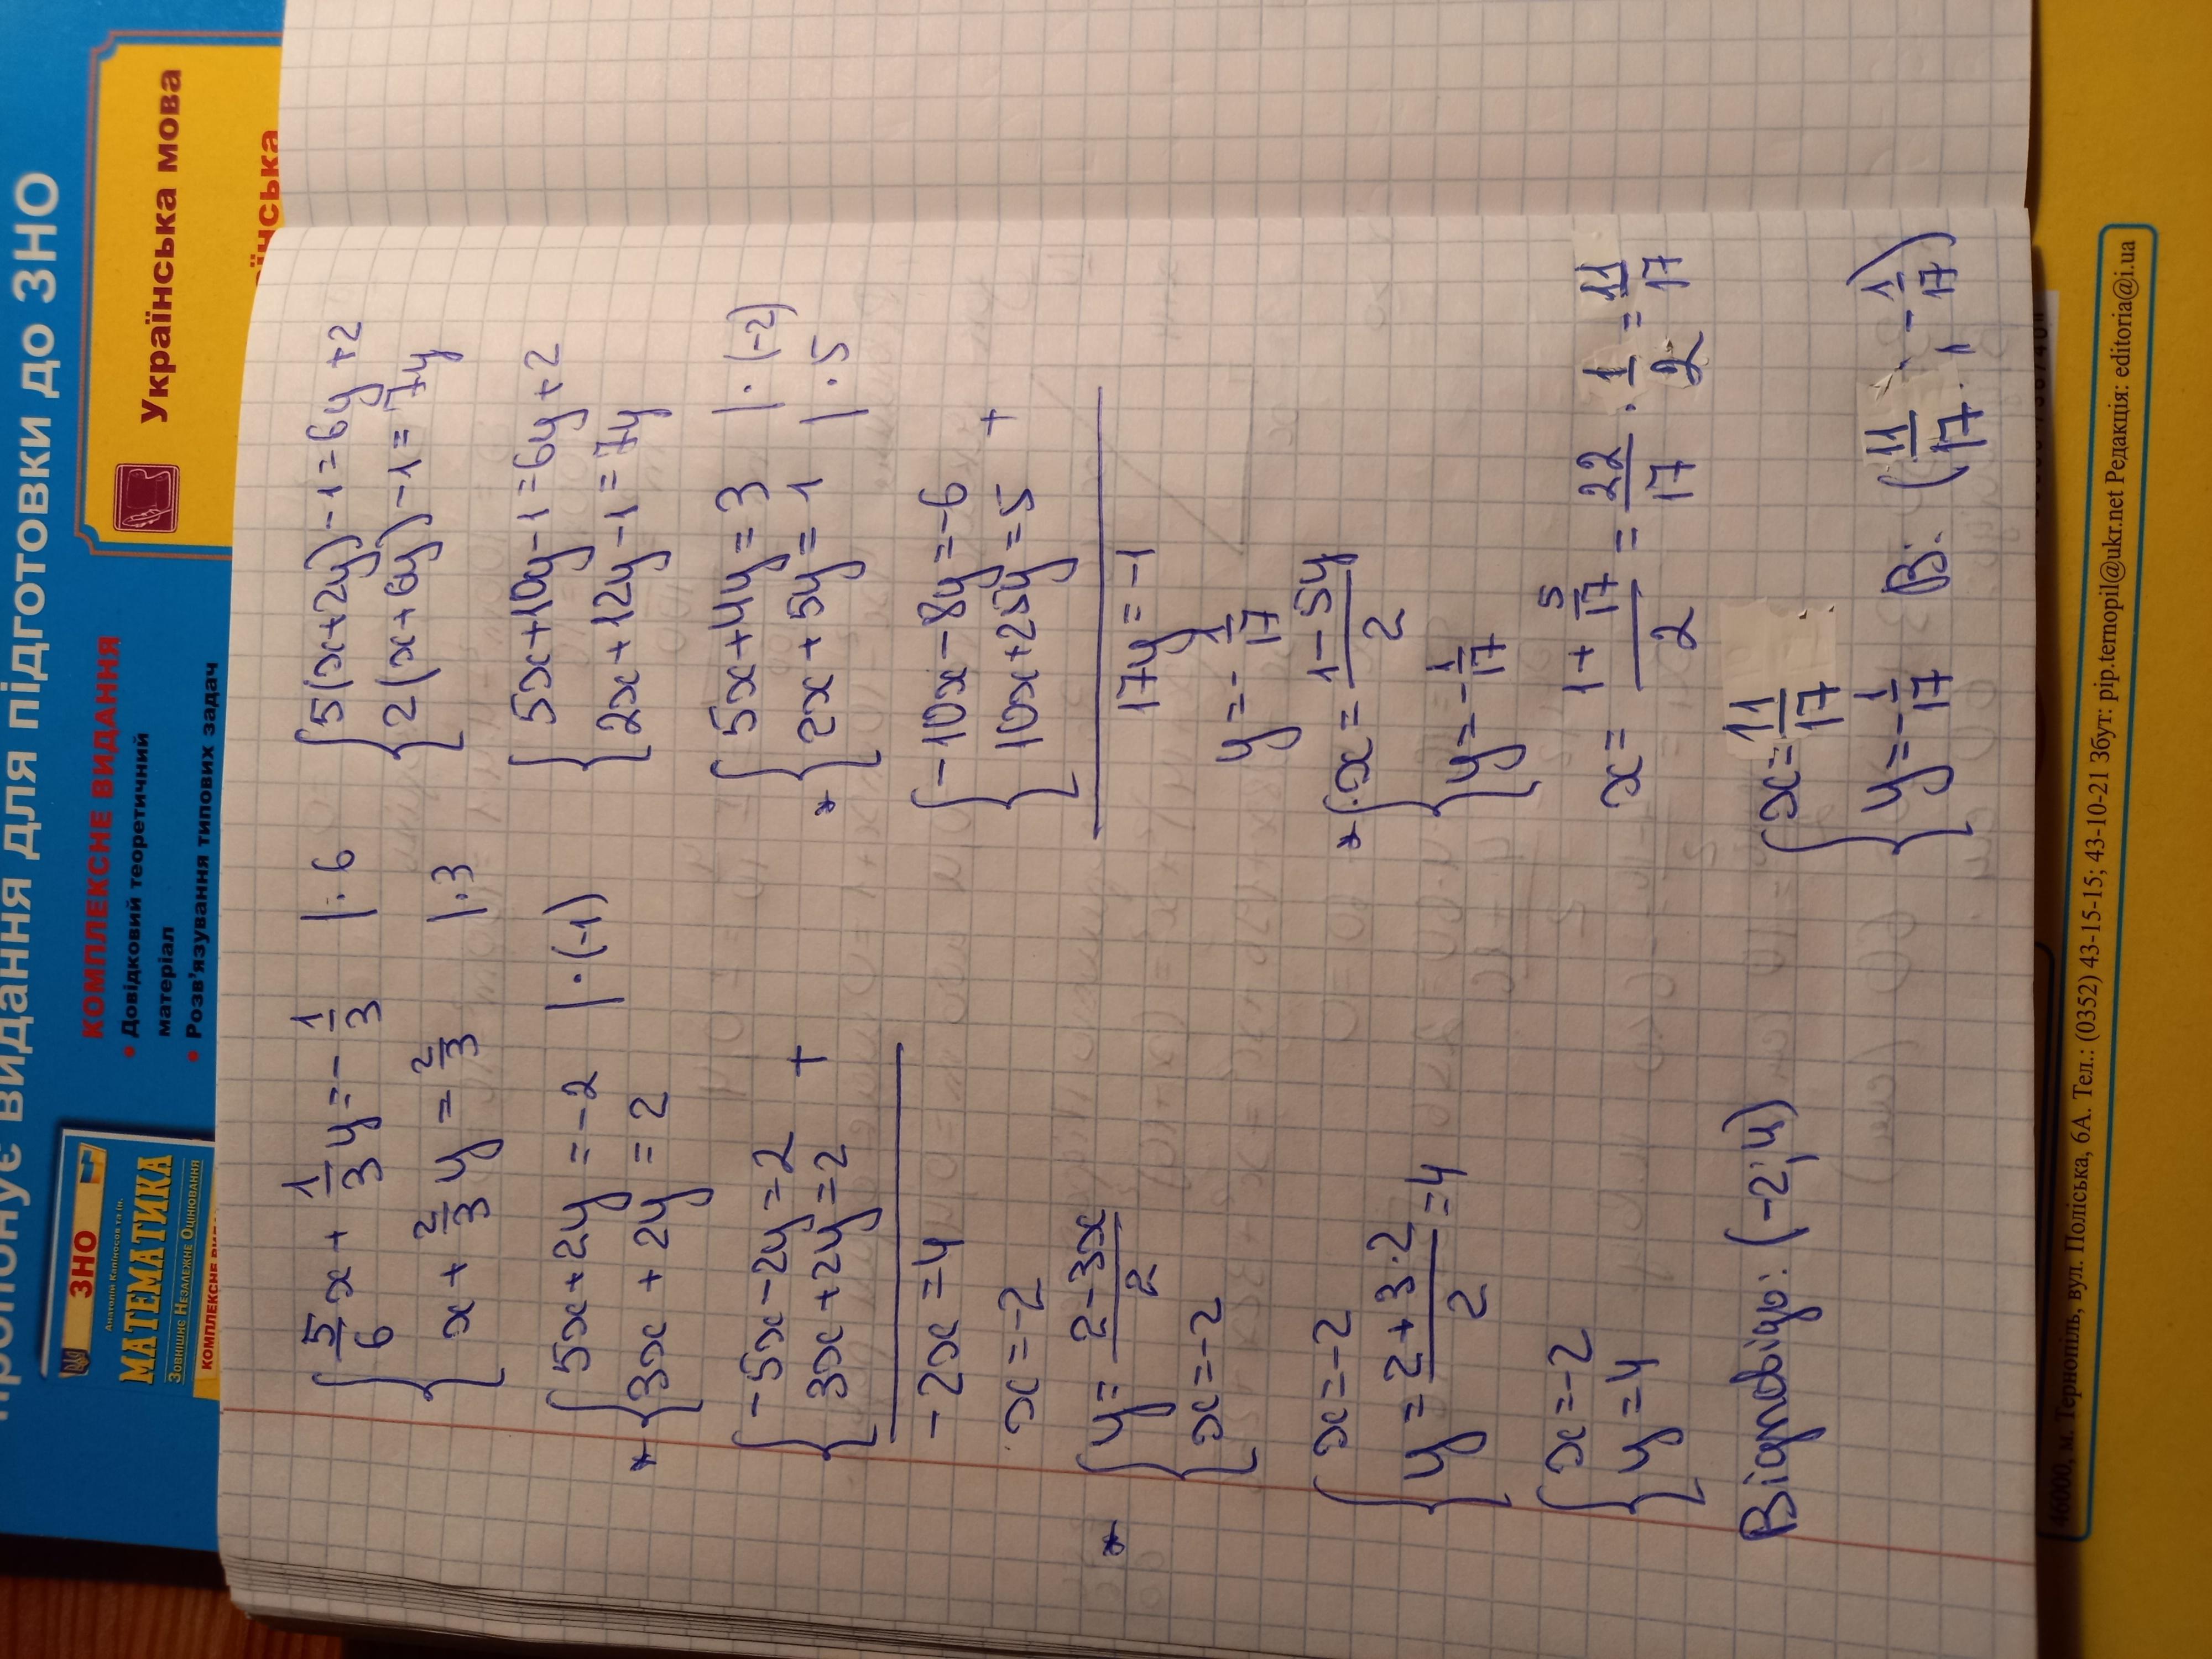 пропонує видання для підготовки до ЗНО
ЗНО
Анатолій Капіносов та ін.
МАТЕМАТИКА
Зовнішнє Незалежне Оцінювання
КОМПЛЕКСНЕ
КОМПЛЕКСНЕ ВИДАННЯ
• Довідковий теоретичний
матеріал
• Розв'язування типових задач
Українська мова
{ 5/6 x + 1/3 y = - 1/3 | · 6
x + 2/3 y = 2/3 | · 3
{ 5x + 2y = -2 | · (-1)
* 3x + 2y = 2
{ -5x - 2y = 2
3x + 2y = 2 +
-2x = 4
x = -2
* { y = (2 - 3x)/2
x = -2
{ x = -2
y = (2 + 3·2)/2 = 4
{ x = -2
y = 4
Відповідь: (-2; 4)
{ 5(x+2y) - 1 = 6y + 2
2(x+6y) - 1 = 7y
{ 5x + 10y - 1 = 6y + 2
2x + 12y - 1 = 7y
{ 5x + 4y = 3 | · (-2)
* 2x + 5y = 1 | · 5
{ -10x - 8y = -6
10x + 25y = 5 +
17y = -1
y = - 1/17
* { x = (1 - 5y)/2
y = - 1/17
x = (1 + 5/17)/2 = 22/17 · 1/2 = 11/17
{ x = 11/17
y = - 1/17 В: (11/17; - 1/17)
46000, м. Тернопіль, вул. Поліська, 6А. Тел.: (0352) 43-15-15; 43-10-21 Збут: pip.ternopil@ukr.net Редакція: editoria@i.ua